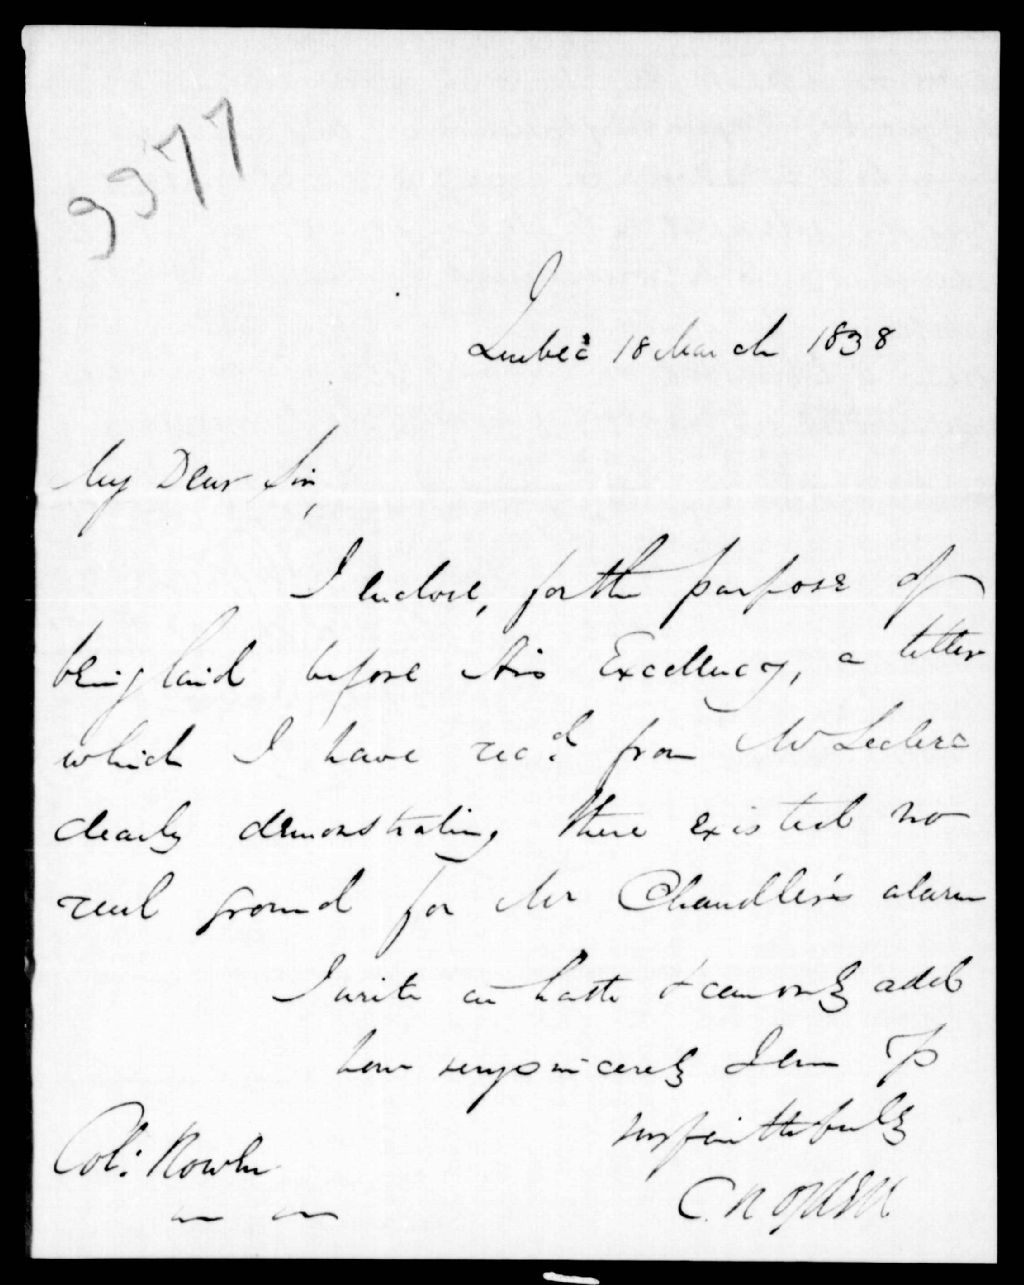 3977
Quebec 18 March 1838
My Dear Sir,
I enclose, for the purpose of
being laid before His Excellency, a letter
which I have rec.d from Mr Leclerc
clearly demonstrating there existed no
real ground for Mr Chandler's alarm
I write in haste & can only add
how very sincerely I am Yrs
very faithfully
Col: Rowan
C. R. Ogden